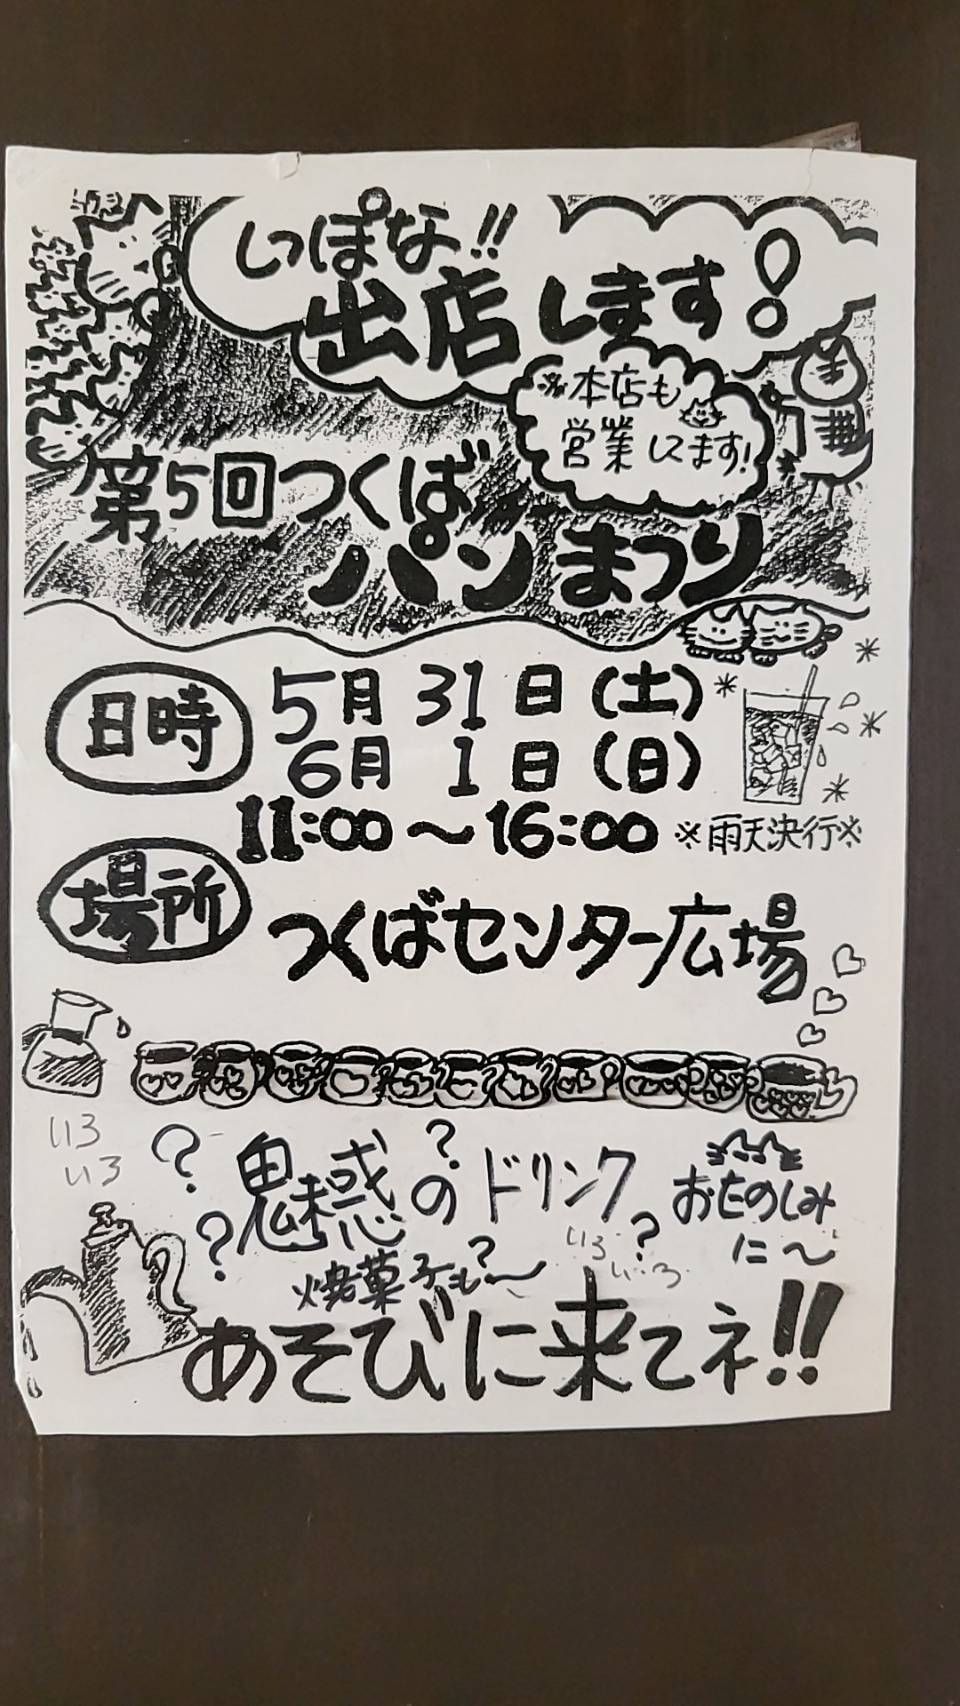 しっぽな!!
出店します!
※本店も
営業してます!
第5回つくば
パンまつり
日時
5月31日(土)
6月1日(日)
11:00〜16:00 ※雨天決行※
場所
つくばセンター広場
いろ
いろ
? 魅惑の?ドリンク
おたのしみ
に〜
? 焼菓子も?〜
いろ ?
いろ
あそびに来てネ!!